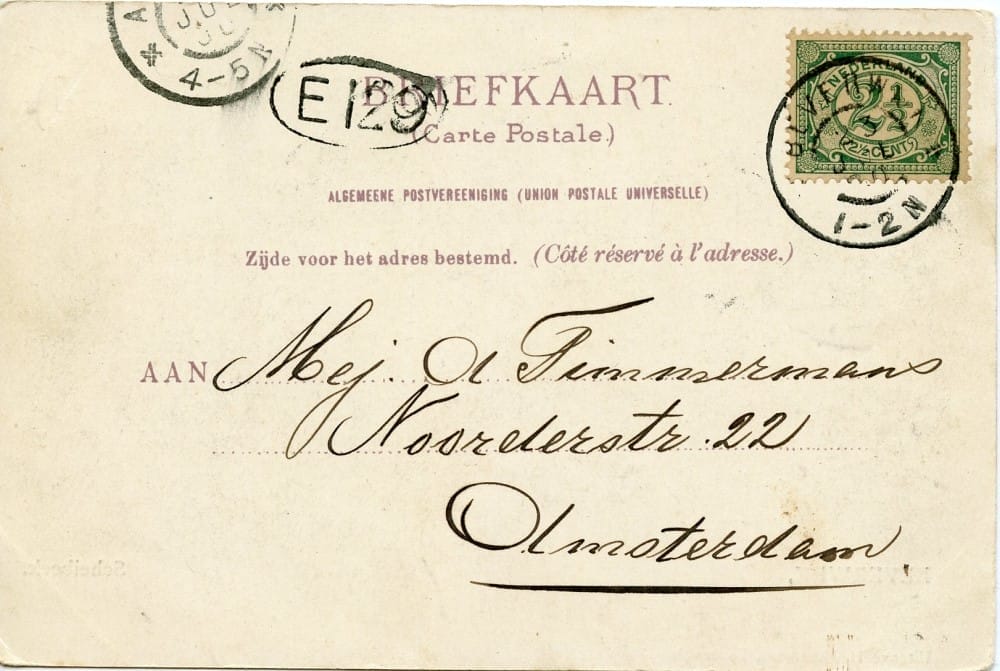 4-5 N
E 129
BRIEFKAART
(Carte Postale.)
ALGEMEENE POSTVEREENIGING (UNION POSTALE UNIVERSELLE)
Zijde voor het adres bestemd. (Côté réservé à l'adresse.)
NEDERLAND
2 1/2
(2½ CENT)
1-2 N
AAN Mej. A Timmermans
Noorderstr. 22
Amsterdam